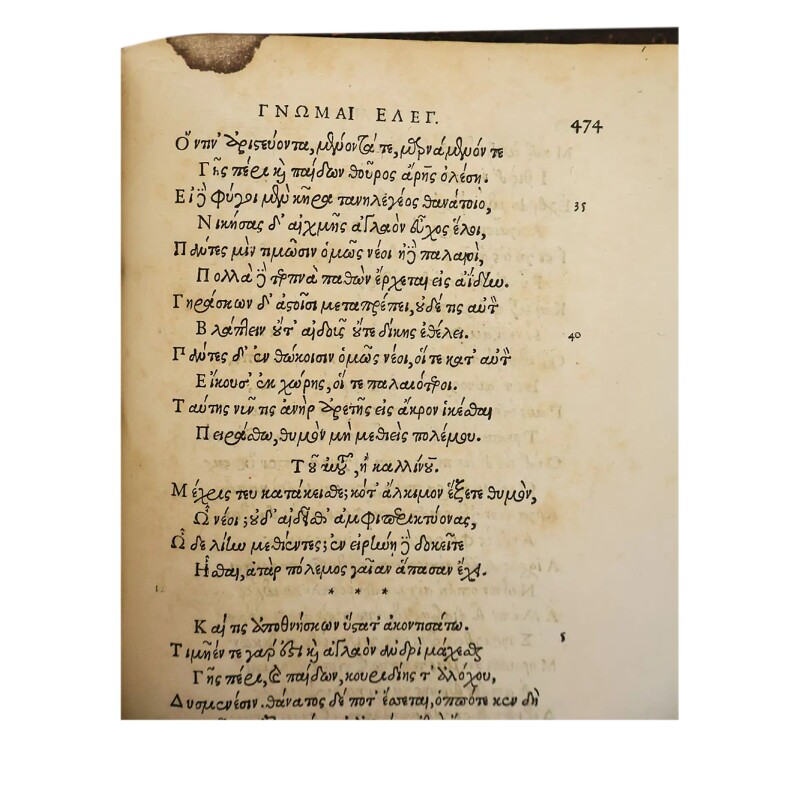 ΓΝΩΜΑΙ ΕΛΕΓ. 474
Ὅντιν' ἀριστεύοντα, μένοντά τε, μαρνάμενόν τε
Γῆς πέρι καὶ παίδων θοῦρος ἄρης ὀλέσῃ.
Εἰ δὲ φύγοι μὲν κῆρα τανηλεγέος θανάτοιο, 35
Νικήσας δ' αἰχμῆς ἀγλαὸν εὖχος ἕλοι,
Πάντες μὶν τιμῶσιν ὁμῶς νέοι ἠδὲ παλαιοὶ,
Πολλὰ δὲ τερπνὰ παθὼν ἔρχεται εἰς ἀΐδην.
Γηράσκων δ' ἀστοῖσι μεταπρέπει, οὐδέ τις αὐτὸν
Βλάπτειν οὔτ' αἰδοῦς οὔτε δίκης ἐθέλει. 40
Πάντες δ' ἐν θώκοισιν ὁμῶς νέοι, οἵ τε κατ' αὐτὸν
Εἴκουσ' ἐκ χώρης, οἵ τε παλαιότεροι.
Ταύτης νῦν τις ἀνὴρ ἀρετῆς εἰς ἄκρον ἱκέσθαι
Πειράσθω, θυμὸν μὴ μεθιεὶς πολέμου.
Τοῦ αὐτοῦ, ἢ καλλίνου.
Μέχρις τευ κατάκεισθε; κότ' ἄλκιμον ἕξετε θυμὸν,
Ὦ νέοι; οὐδ' αἰδεῖσθ' ἀμφιπερικτύονας,
Ὧδε λίην μεθιέντες; ἐν εἰρήνῃ δὲ δοκεῖτε
Ἧσθαι, ἀτὰρ πόλεμος γαῖαν ἅπασαν ἔχει.
* * *
Καί τις ἀποθνήσκων ὕστατ' ἀκοντισάτω.
Τιμῆέν τε γάρ ἐστι καὶ ἀγλαὸν ἀνδρὶ μάχεσθαι 5
Γῆς πέρι, καὶ παίδων, κουριδίης τ' ἀλόχου,
Δυσμενέσιν. θάνατος δέ ποτ' ἔσσεται, ὁππότε κεν δὴ